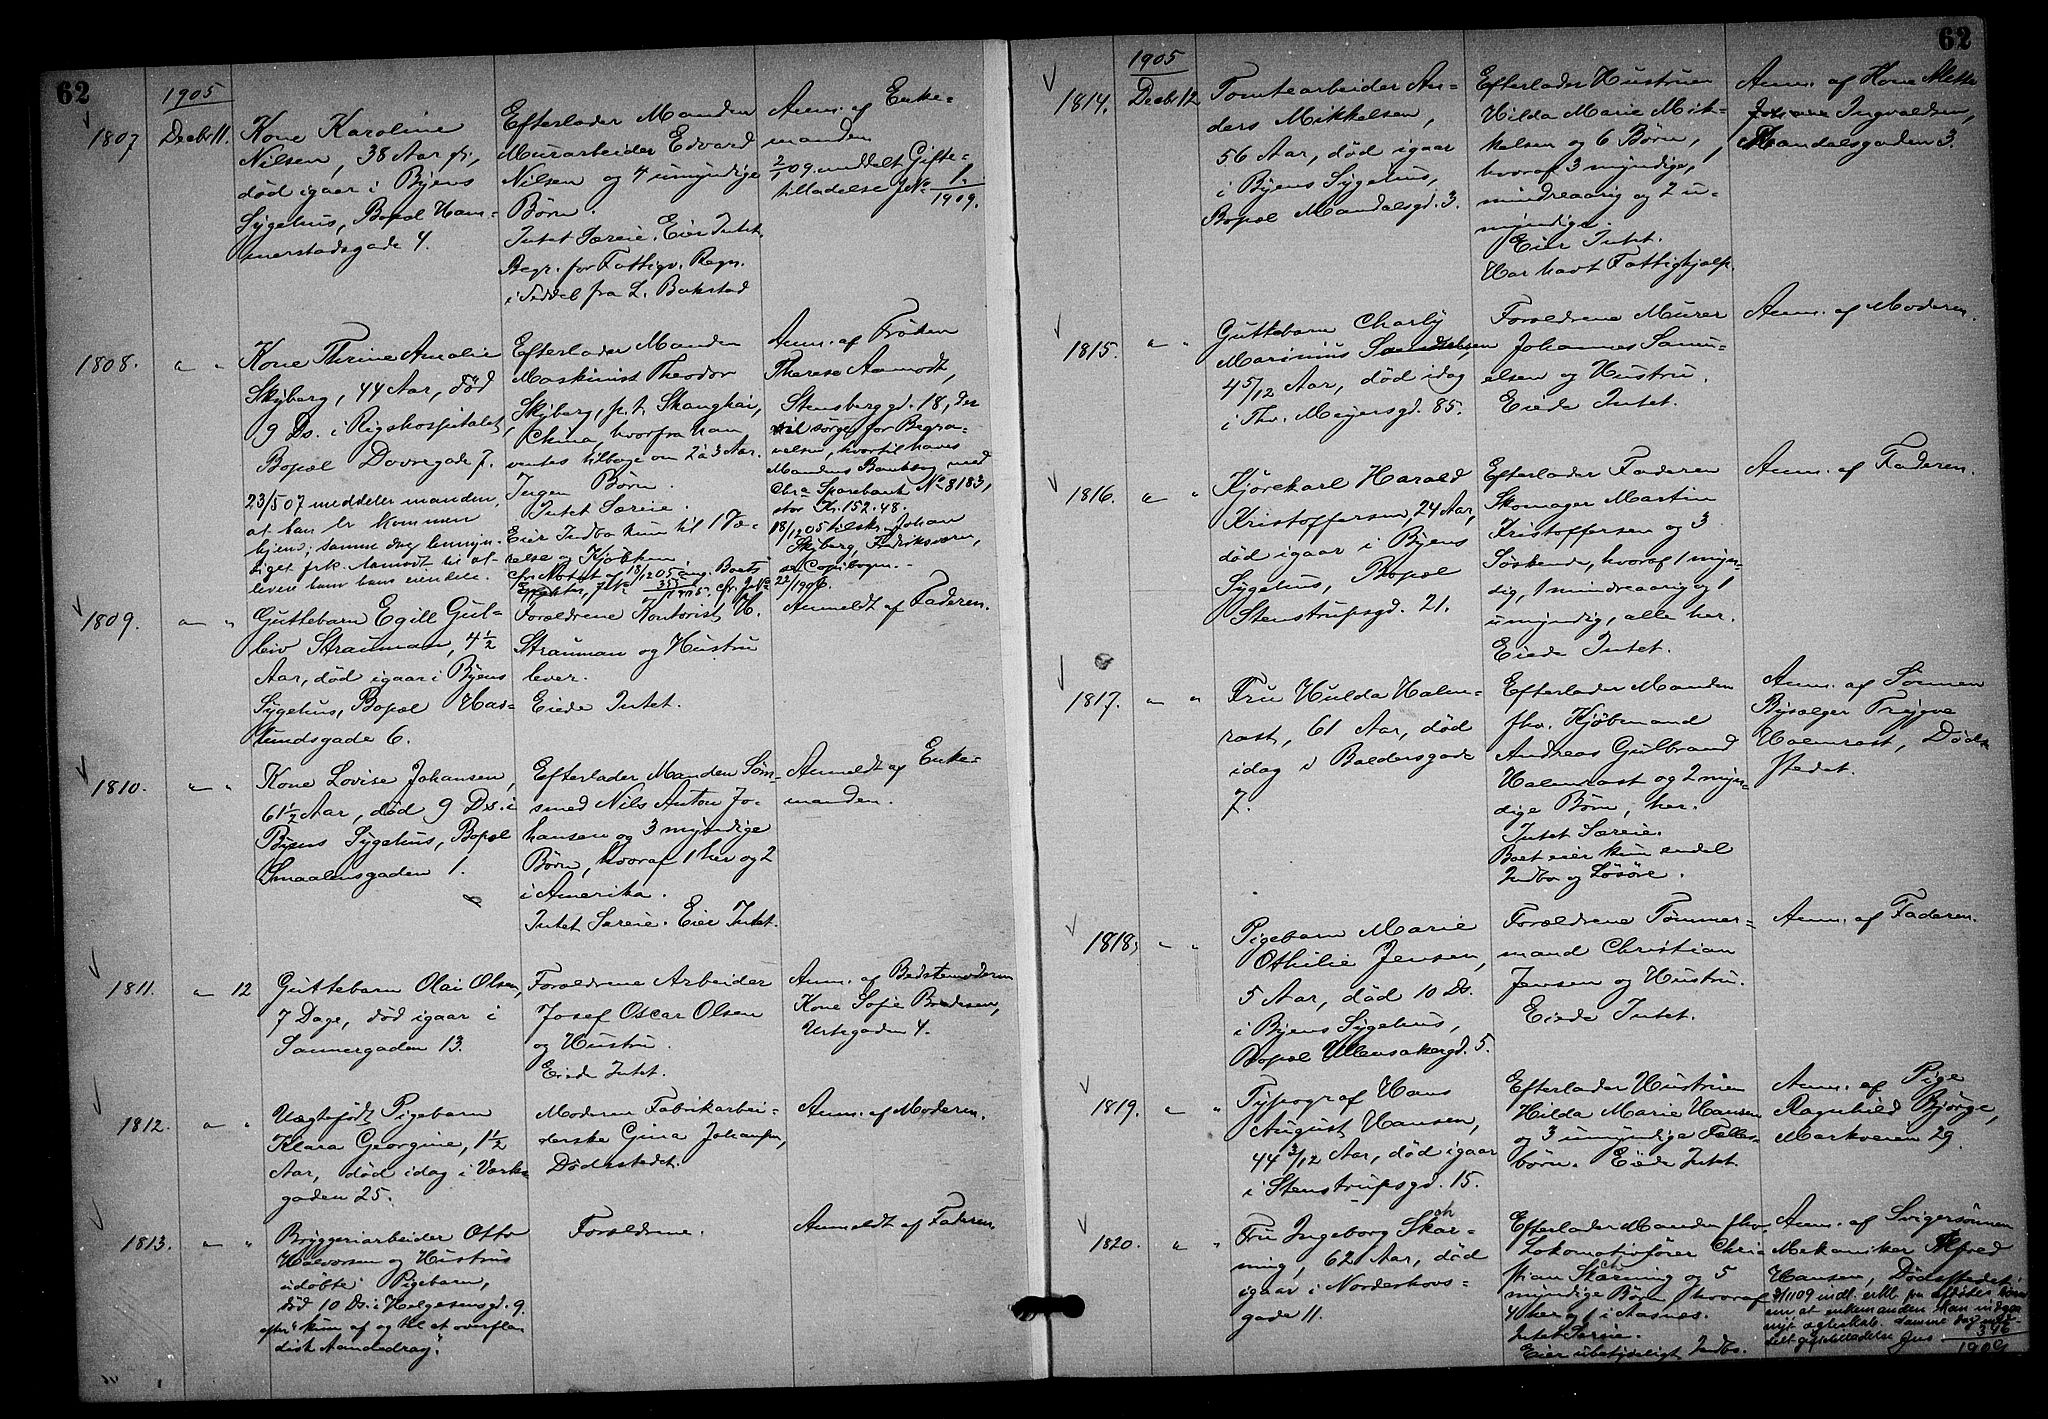 62
1905
1807
Decbr 11.
Kone Karoline
Nilsen, 38 Aar gl.,
død igaar i Byens
Sygehus, Bopæl Ham-
merstadsgade 4.
Efterlader Manden
Murarbeider Edvard
Nilsen og 4 umyndige
Børn.
Intet Særeie. Eier Intet.
Begr. for Fattigv. Regn.
fra L. Bakstad
Anm. af Enke-
manden
2/1 09 meddelt Gifte-
tilladelse J.No 1/1909.
1808.
" "
Kone Thrine Amalie
Skyberg, 44 Aar, død
9 Ds. i Rigshospitalet,
Bopæl Dovregade 7.
23/5 07 meddeler manden,
at han er kommen
hjem; samme dag bemyn-
diget frk. Aamodt til at
levere ham hans eiendele.
Efterlader Manden
Maskinist Theodor
Skyberg, p.t. Shanghai,
China, hvorfra han
ventes tilbage om 2 à 3 Aar.
Ingen Børn.
Intet Særeie.
Eier Indbo kun til 1 Væ-
relse og Kjøkken
cfr. Notat af 18/12 05 ang. Boets
Anm. af Frøken
Therese Aamodt,
Stensberggd. 18, der
vil sørge for Begra-
velsen, hvortil haves
Mandens Bankbog med
Chra Sparebank No 8183,
stor Kr. 152.48.
18/12 05 tilskr. Johan
Skyberg, Fredriksværn,
se Copibogen.
22/1906.
1809.
" "
Guttebarn Egill Gut-
leiv Strauman, 4 1/2
Aar, død igaar i Byens
Sygehus, Bopæl Has-
lundsgade 6.
Forældrene Kontorist H.
Strauman og Hustru
lever.
Eiede Intet.
Anmeldt af Faderen.
1810.
" "
Kone Lovise Johansen,
61 1/2 Aar, død 9 Ds. i
Byens Sygehus, Bopæl
Smaalensgaden 1.
Efterlader Manden Søm-
smed Nils Anton Jo-
hansen og 3 myndige
Børn, hvoraf 1 her og 2
i Amerika.
Intet Særeie. Eier Intet.
Anmeldt af Enke-
manden.
1811.
" 12
Guttebarn Olai Olsen,
7 Dage, død igaar i
Sannergaden 13.
Forældrene Arbeider
Josef Oscar Olsen
og Hustru.
Eiede Intet.
Anm. af Bedstemoderen
Kone Sofie
Urtegaden 4.
1812.
" "
Uægtefødt Pigebarn
Klara Georgine, 1 1/2
Aar, død idag i Verks-
gaden 25.
Moderen Fabrikarbei-
derske Gina Johansen,
Dødsstedet.
Anm. af Moderen.
1813.
" "
Bryggeriarbeider Otto
Halvorsen og Hustrus
udøbte Pigebarn,
død 10 Ds. i Helgesensgd. 9.
efter "kun af og til et overfla-
disk Aandedrag".
Forældrene.
Anmeldt af Faderen.
62
1905
1814.
Decbr 12
Tomtearbeider An-
ders Mikkelsen,
56 Aar, død igaar
i Byens Sygehus,
Bopæl Mandalsgd. 3.
Efterlader Hustruen
Hilda Marie Mik-
kelsen og 6 Børn,
hvoraf 3 myndige, 1
mindreaarig og 2 u-
myndige.
Eier Intet.
Har havt Fattighjælp.
Anm. af Kone Mette
Ingvaldsen,
Mandalsgaden 3.
1815.
" "
Guttebarn Charly
Marinius
4 5/12 Aar, død idag
i Thv. Meyersgd. 85.
Forældrene Murer
Johannes Samu-
elsen og Hustru.
Eiede Intet.
Anm. af Moderen.
1816.
" "
Kjørekarl Harald
Kristoffersen, 24 Aar,
død igaar i Byens
Sygehus, Bopæl
Stenstrupsgd. 21.
Efterlader Faderen
Skomager Martin
Kristoffersen og 3
Søskende, hvoraf 1 myn-
dig, 1 mindreaarig og 1
umyndig, alle her.
Eiede Intet.
Anm. af Faderen.
1817.
" "
Fru Hulda Halm-
rast, 61 Aar, død
idag i Baldersgade
7.
Efterlader Manden
fhv. Kjøbmand
Andreas Gulbrand
Halmrast og 2 myn-
dige Børn, her.
Intet Særeie.
Boet eier kun endel
Indbo og Løsøre.
Anm. af Sønnen
Bysælger Trygve
Halmrast, Døds-
stedet.
1818.
" "
Pigebarn Marie
Othilie Jensen,
5 Aar, død 10 Ds.
i Byens Sygehus,
Bopæl Ullensakergd. 5.
Forældrene Tømmer-
mand Christian
Jensen og Hustru.
Eiede Intet.
Anm. af Faderen.
1819.
" "
Typograf Hans
August Hansen,
44 3/12 Aar, død igaar
i Stenstrupsgd. 15.
Efterlader Hustruen
Hilda Marie Hansen
og 3 umyndige Fælles-
børn. Eiede Intet
Anm. af Pige
Ragnhild Bjørge,
Markveien 29.
1820.
" "
Fru Ingeborg Skar-
ning, 62 Aar, død
igaar i Norderhovs-
gade 11.
Efterlader Manden fhv.
Lokomotivfører Chri-
stian Skarning og 5
myndige Børn, hvoraf
4 her og 1 i Aasnes.
Intet Særeie.
Eier ubetydeligt Indbo.
Anm. af Svigersønnen
Mekaniker Alfred
Hansen, Dødsstedet.
om at enkemanden kan indgaa
nyt ægteskab. samme dag med-
delt giftetilladelse Jno 396
1909